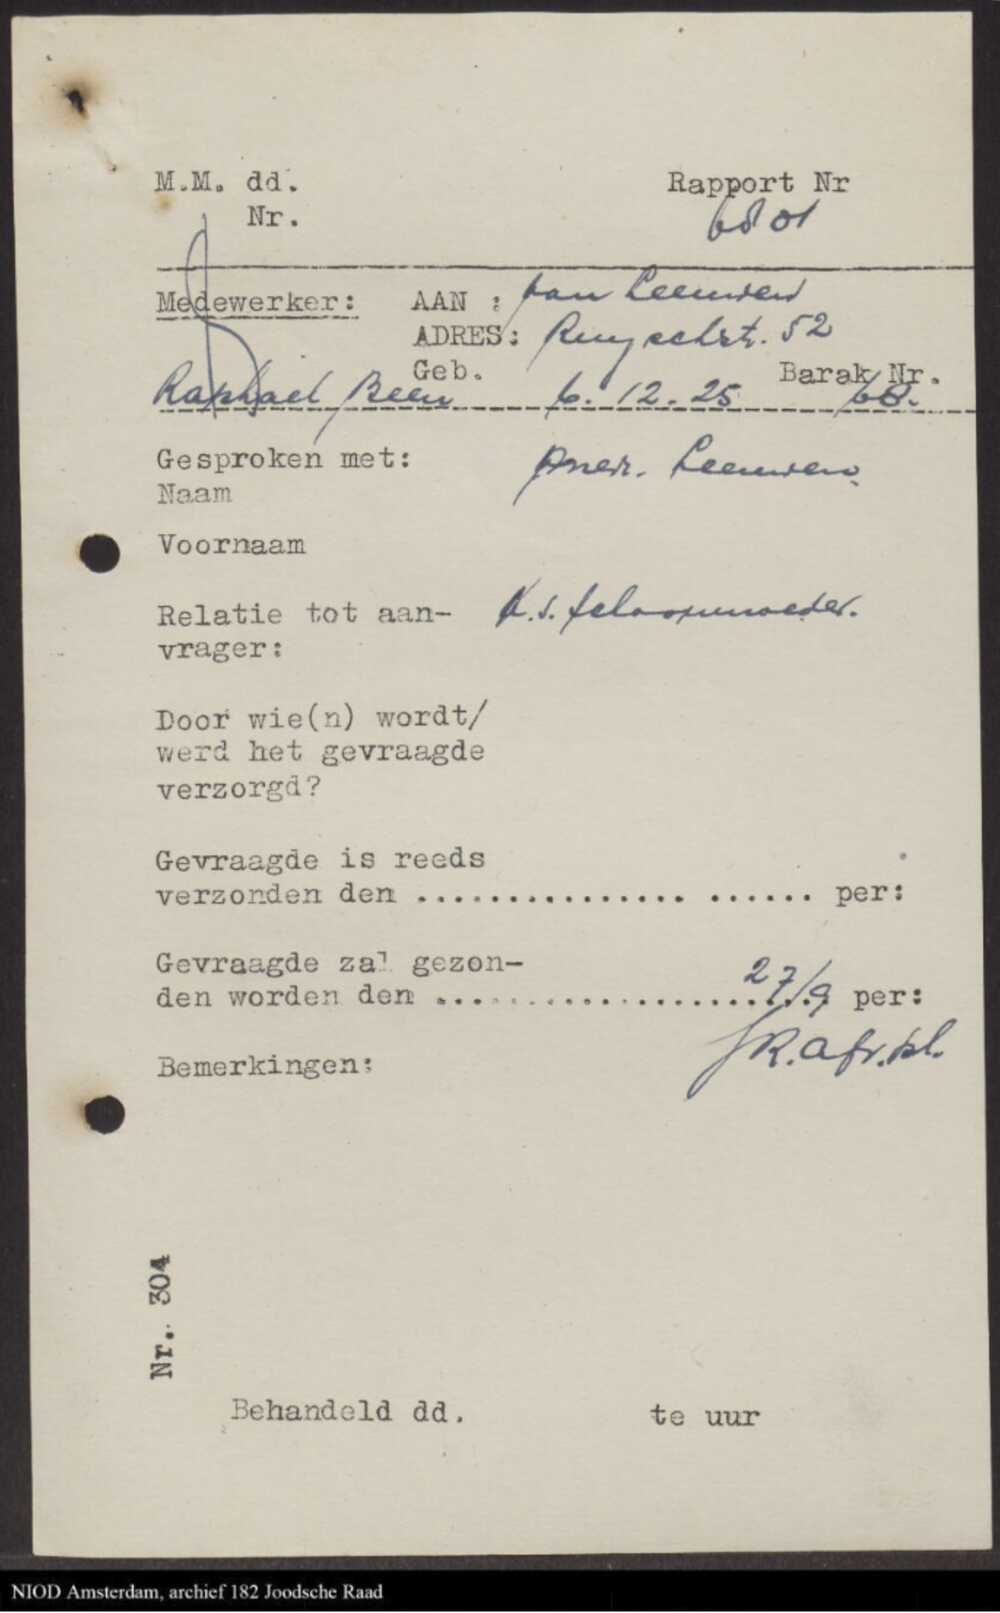 M.M. dd.
Rapport Nr
Nr.
6801
Medewerker:
AAN : van Leeuwen
ADRES: Ruyschstr. 52
Geb.
Barak Nr.
Raphael Been 6.12.25 68.
Gesproken met: Mevr. Leeuwen
Naam
Voornaam
Relatie tot aan- a.s. schoonmoeder.
vrager:
Door wie(n) wordt/
werd het gevraagde
verzorgd?
Gevraagde is reeds
verzonden den ..................... per:
Gevraagde zal gezon-
den worden den ..................... 27/9 per:
JR. Afr. pl.
Bemerkingen:
Nr. 304
Behandeld dd. te uur
NIOD Amsterdam, archief 182 Joodsche Raad